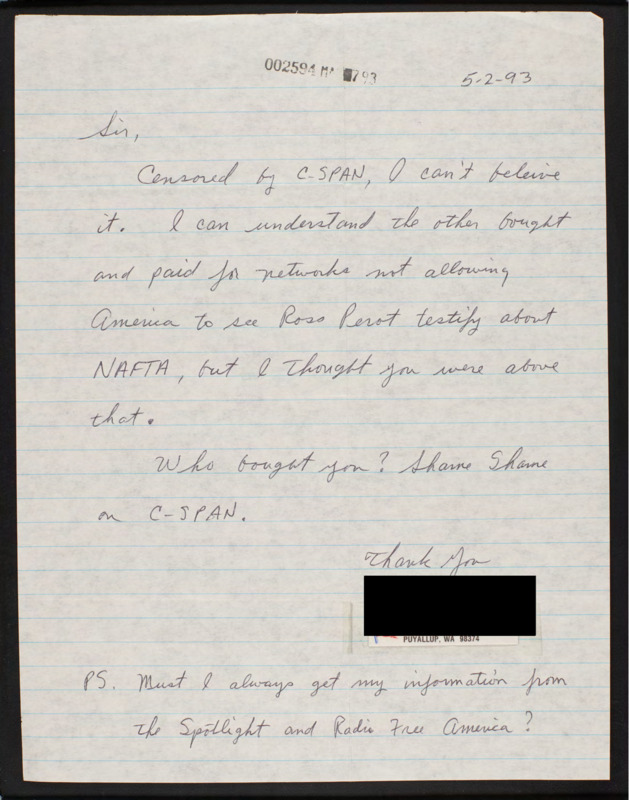 002594 MA 793
5-2-93
Sir,
Censored by C-SPAN, I can't beleive
it. I can understand the other bought
and paid for networks not allowing
America to see Ross Perot testify about
NAFTA, but I thought you were above
that.
Who bought you? Shame Shame
on C-SPAN.
Thank You
PUYALLUP, WA 98374
PS. Must I always get my information from
the Spotlight and Radio Free America?